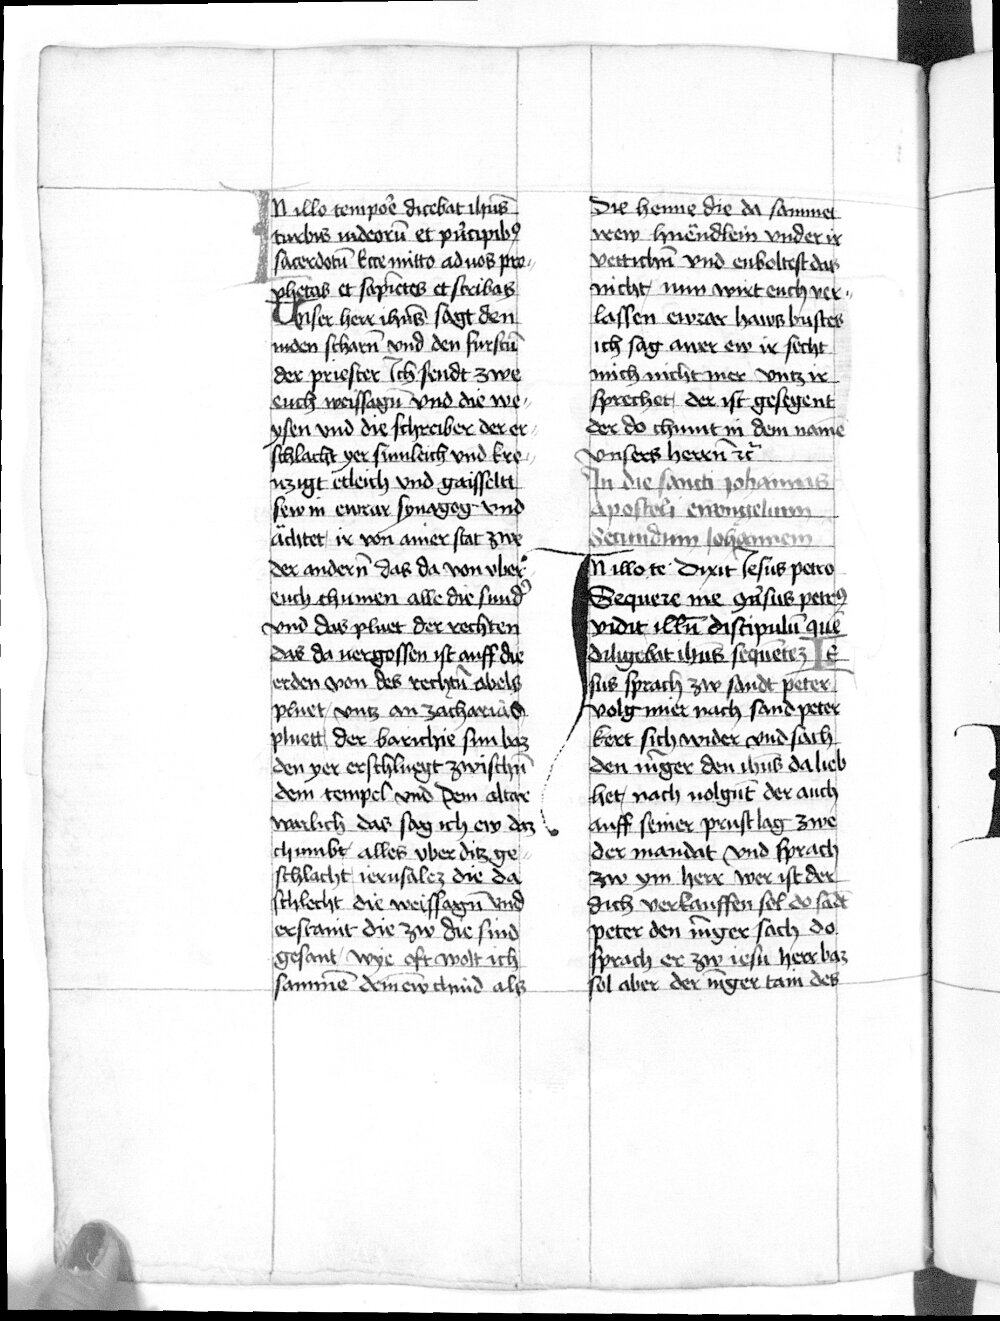 IN illo tempoꝛe dicebat ih̅us
turbis iudeoru̅ et pꝛi̅cipibꝰ
sacerdotu̅ Ecce mitto ad uos pro⸗
phetas et sapie̅tes et scribas
Unser herr ih̅us sagt den
iuden scharn̅ vnd den furste̅
der priester Ich sendt zwe
euch weissagn̅ vnd die we⸗
ysen vnd die schreiber der er⸗
schlacht yer sumleich vnd kre⸗
uzigt etleich vnd gaisseltt
sew in ewrar synagog vnd
ächtet ir von ainer stat zwe
der andern̅ das da von vber
euch chumen alle die sund
vnd das pluet der rechten
das da uergossen ist auff die
erden von des rechtn̅ abels
pluet vntz an zacharias
pluett der barichie sun
den yer erschluegt zwischn̅
dem tempel vnd dem altar
warlich das sag ich ew daz
chumbt alles vber ditz ge⸗
schlacht ierusalez die da
schlecht die weissagn̅ vnd
erstaint die zw die sind
gesant wye oft wolt ich
samme̅ dein ew chind als
Die henne die da sammet
irew hüendlein vnder ir
vettichn̅ vnd enboltest das
nicht nun wirt euch ver⸗
lassen ewrar haws bustes
ich sag awer ew ir secht
mich nicht mer vntz ir
sprechet der ist gesegent
der do chumt in dem name̅
vnsers herrn̅ ꝛc̅
In die sancti Johannis
Apostoli ewangelium
Secundum Johannem
IN illo te Dixit Jesus petro
Sequere me 9u̅sus petrꝰ
vidit illu̅ discipulu̅ que̅
diligebat ih̅us seque̅tez Je
sus sprach zw sandt peter
volg mier nach sand peter
kert sich wider vnd sach
den iu̅ger den ih̅us da lieb
het nach uolgu̅t der auch
auff seiner prust lag zwe
der mandat vnd sprach
zw ym herr wer ist der
dich verkauffen sol do sa̅dt
peter den iu̅ger sach do
sprach er zw iesu herr baz
sol aber der iu̅ger tain des